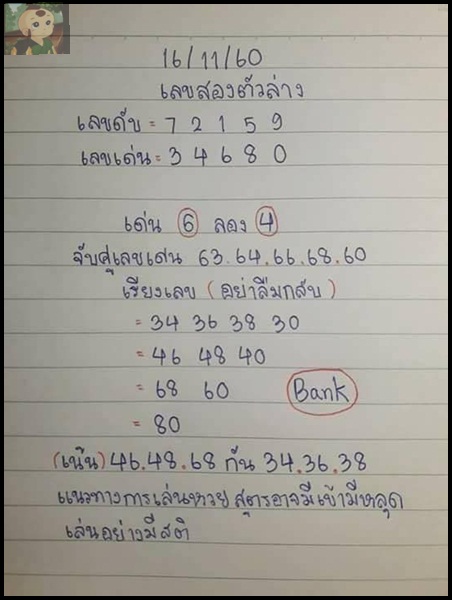 16/11/60
เลขสองตัวล่าง
เลขดับ = 7 2 1 5 9
เลขเด่น = 3 4 6 8 0
เด่น 6 ลอง 4
จับคู่เลขเด่น 63.64.66.68.60
เรียงเลข (อย่าลืมกลับ)
= 34 36 38 30
= 46 48 40
= 68 60 Bank
= 80
(เน้น) 46.48.68 กัน 34.36.38
แนวทางการเล่นหวย สูตรอาจมีเข้ามีหลุด
เล่นอย่างมีสติ